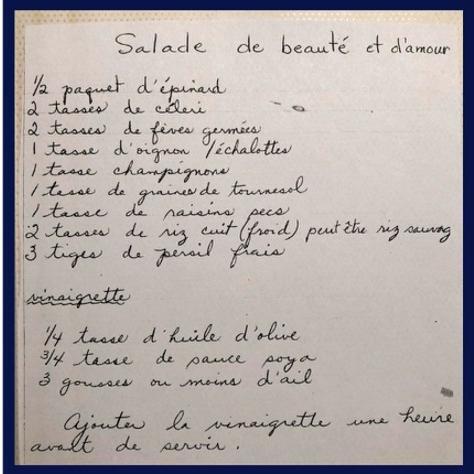 Salade de beauté et d'amour
1/2 paquet d'épinard
2 tasses de céleri
2 tasses de fèves germées
1 tasse d'oignon / échalottes
1 tasse champignons
1 tasse de graines de tournesol
1 tasse de raisins secs
2 tasses de riz cuit (froid) peut être riz sauvag
3 tiges de persil frais
vinaigrette
1/4 tasse d'huile d'olive
3/4 tasse de sauce soya
3 gousses ou moins d'ail
Ajouter la vinaigrette une heure
avant de servir.